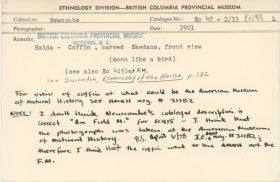 ETHNOLOGY DIVISION—BRITISH COLUMBIA PROVINCIAL MUSEUM
Collector Newcombe Catalogue No. Eo 47 - I/33
Purchased Date 1901
BRITISH COLUMBIA PROVINCIAL MUSEUM
Remarks VICTORIA, B.C.
Haida - Coffin, carved Skedans, front view
(moon like a bird)
(see also Eo 415) at F.M.
see Swanton, Ethnology of the Haida, p. 132
For view of coffin at what could be the American Museum
of Natural History see neg. #
NOTE: I don't think Newcombe's catalogue description is
correct "Am Field M." for EC415 - I think that
the photograph was taken at the American Museum
of Nat. History, April 4/78
therefore I think that the coffin went to the AMNH not the
F.M.